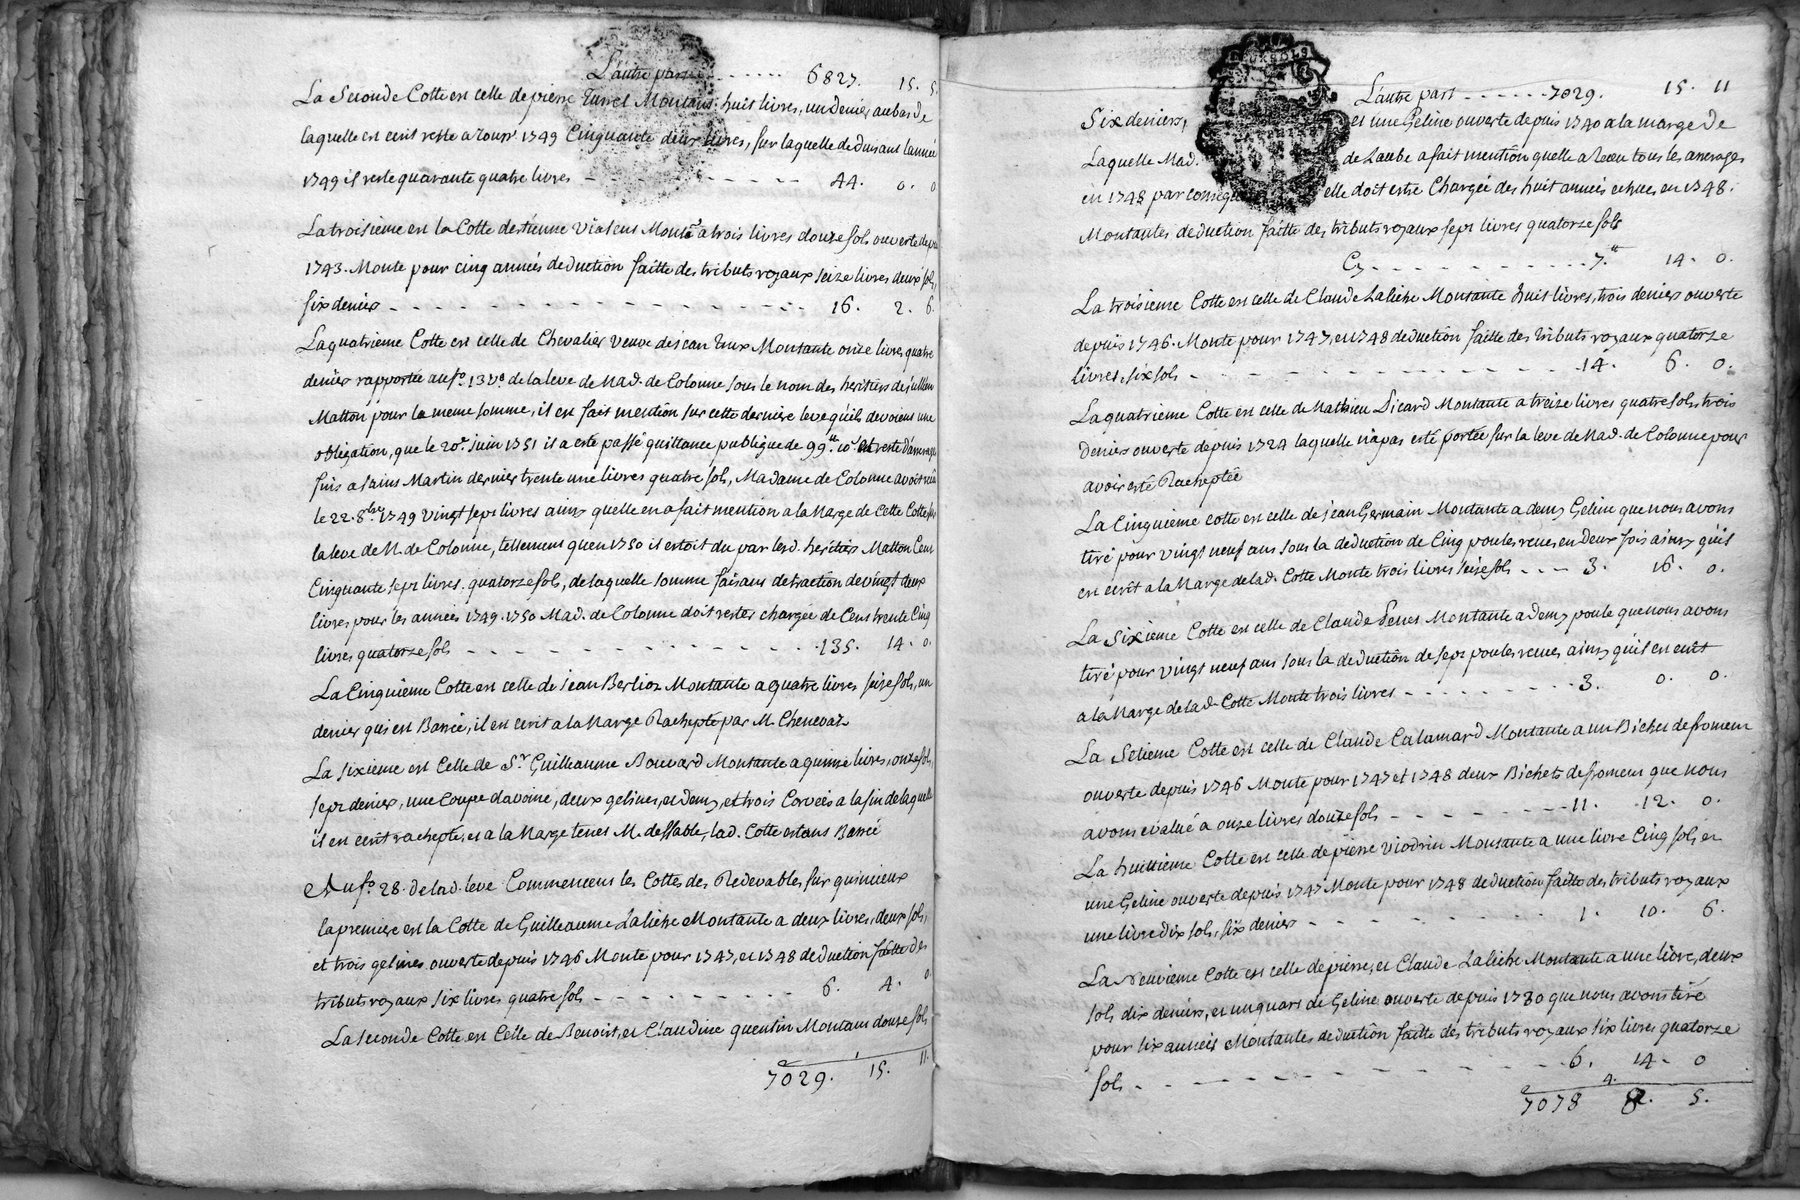 L'autre part ------- 6827. 15. 5
La Seconde Cotte est celle de pierre Turrel Montant huit livres, un denier au bas de
laquelle est ecrit reste a Tours 1749 Cinquante deux livres, sur laquelle deduisant lannée
1749 il reste quarante quatre livres - - - - 44. 0. 0
La troisieme est la Cotte destienne Vialens Monte a trois livres douze sols ouverte depuis
1743. Monte pour cinq années deduction faitte des tributs royaux seize livres deux sols,
six deniers - - - - - - - - 16. 2. 6.
La quatrieme Cotte est celle de Chevalier veuve de jean Montante onze livres quatre
deniers rapportée au fo. 13 vo de la leve de Mad. de Colonne sous le nom des heritiers de
Matton pour la meme somme, il est fait mention sur cette derniere leve qu'ils devoient une
obligation, que le 20e juin 1751 il a esté passé quittance publique de 99tt 10s reste d'arrerages
a saint Martin dernier trente une livres quatre sols, Madame de Colonne avoit reçu
le 22. 8bre 1749 vingt sept livres ainsy quelle en a fait mention a la Marge de Cette Cotte sur
la leve de M. de Colonne, tellement qu'en 1750 il estoit du par lesd. heritiers Matton Cent
Cinquante sept livres quatorze sols, de laquelle somme faisant detraction de vingt deux
livres pour les années 1749. 1750 Mad. de Colonne doit rester chargée de Cent trente Cinq
livres quatorze sols - - - - - - - 135. 14. 0.
La Cinquieme Cotte est celle de jean Berlioz Montante a quatre livres seize sols, un
denier qui est Barrée, il est ecrit a la Marge Racheptée par M. Chenevaz
La sixieme est Celle de Sr. Guilleaume Bouvard Montante a quinze livres, onze sols,
sept deniers, une Coupe d'avoine, deux gelines, et demy, et trois Corvées a la fin de laquelle
il est ecrit racheptée, et a la Marge tenet M. de Sable, lad. Cotte estant Barrée
Au fo. 28. de lad. leve Commencent les Cottes des Redevables sur quincieux
la premiere est la Cotte de Guilleaume Laliche Montante a deux livres, deux sols,
et trois gelines ouverte depuis 1746 Monte pour 1747, et 1748 deduction faitte des
tributs royaux six livres quatre sols - - - - - - 6. 4. 0
La seconde Cotte est Celle de Benoist, et Claudine quentin Montant douze sols
7029. 15. 11.
L'autre part ------ 7029. 15. 11
Six deniers, et une Geline ouverte depuis 1740 a la marge de
Laquelle Mad. de Laube a fait mention quelle a Receu tous les arrerages
en 1748 par conseq elle doit estre Chargée des huit années echues en 1748.
Montantes deduction faitte des tributs royaux sept livres quatorze sols
Cy - - - - - - - - 7.tt 14. 0.
La troisieme Cotte est celle de Claude Laliche Montante huit livres, trois deniers ouverte
depuis 1746. Monte pour 1747, et 1748 deduction faitte des Tributs royaux quatorze
livres, six sols - - - - - - - - 14. 6. 0.
La quatrieme Cotte est celle de Mathieu Sicard Montante a treize livres quatre sols, trois
deniers ouverte depuis 1724 laquelle n'a pas esté portée sur la leve de Mad. de Colonne pour
avoir esté Racheptée
La Cinquieme cotte est celle de jean Germain Montante a demy Geline que nous avons
tiré pour vingt neuf ans sous la deduction de Cinq poules reçues en deux fois ainsy qu'il
est ecrit a la Marge de lad. Cotte Monte trois livres seize sols - - - 3. 16. 0.
La Sixieme Cotte est celle de Claude Montante a demy poule que nous avons
tiré pour vingt neuf ans sous la deduction de sept poules reçues ainsy qu'il en ecrit
a la Marge de lad. Cotte Monte trois livres - - - - - - - 3. 0. 0.
La Setieme Cotte est celle de Claude Calamard Montante a un Bichet de froment
ouverte depuis 1746 Monte pour 1747 et 1748 deux Bichets de froment que nous
avons evalué a onze livres douze sols - - - - - - 11. 12. 0.
La huittieme Cotte est celle de pierre Viodrin Montante a une livre Cinq sols, et
une Geline ouverte depuis 1747 Monte pour 1748 deduction faitte des tributs royaux
une livre dix sols, six deniers - - - - - - 1. 10. 6.
La Neuvieme Cotte est celle de pierre, et Claude Laliche Montante a une livre, deux
sols dix deniers, et un quart de Geline ouverte depuis 1730 que nous avons tiré
pour six années Montantes deduction faitte des tributs royaux six livres quatorze
sols - - - - - - - - 6. 14. 0
7078 8. 5.